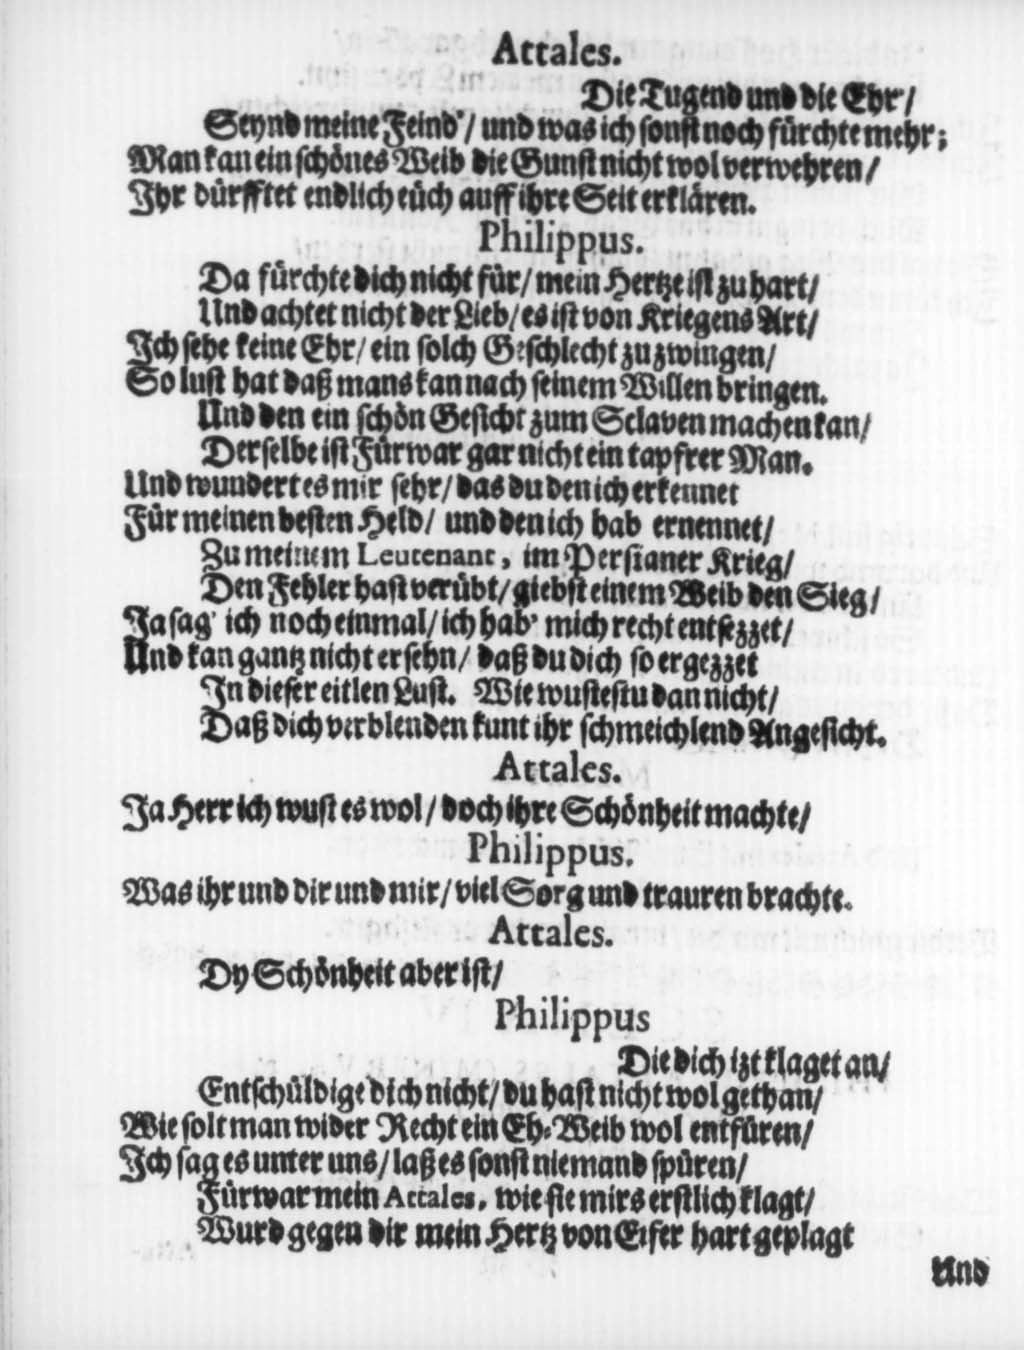 Attales.
Die Tugend und die Ehr'/
Seynd meine Feind'/ und was ich sonst noch fürchte mehr;
Man kan ein schönes Weib die Gunst nicht wol verwehren/
Ihr dürfftet endlich eüch auff ihre Seit erklären.
Philippus.
Da fürchte dich nicht für/ mein Hertze ist zu hart/
Und achtet nicht der Lieb/ es ist von Kriegens Art/
Ich sehe keine Ehr/ ein solch Geschlecht zu zwingen/
So lust hat daß mans kan nach seinem Willen bringen.
Und den ein schön Gesicht zum Sclaven machen kan/
Derselbe ist Fürwar gar nicht ein tapfrer Man.
Und wundert es mir sehr/ das du den ich erkennet
Für meinen besten Held/ und den ich hab ernennet/
Zu meinem Leutenant, im Persianer Krieg/
Den Fehler hast verübt/ giebst einem Weib den Sieg/
Ja sag' ich noch einmal/ ich hab' mich recht entsezzet/
Und kan gantz nicht ersehn/ daß du dich so ergezzet
In dieser eitlen Lust. Wie wustestu dan nicht/
Daß dich verblenden kunt ihr schmeichlend Angesicht.
Attales.
Ja Herr ich wust es wol/ doch ihre Schönheit machte/
Philippus.
Was ihr und dir und mir/ viel Sorg und trauren brachte.
Attales.
Dy Schönheit aber ist/
Philippus
Die dich izt klaget an/
Entschüldige dich nicht/ du hast nicht wol gethan/
Wie solt man wider Recht ein Eh-Weib wol entfüren/
Ich sag es unter uns/ laß es sonst niemand spüren/
Fürwar mein Attales, wie sie mirs erstlich klagt/
Wurd gegen dir mein Hertz von Eifer hart geplagt
Und